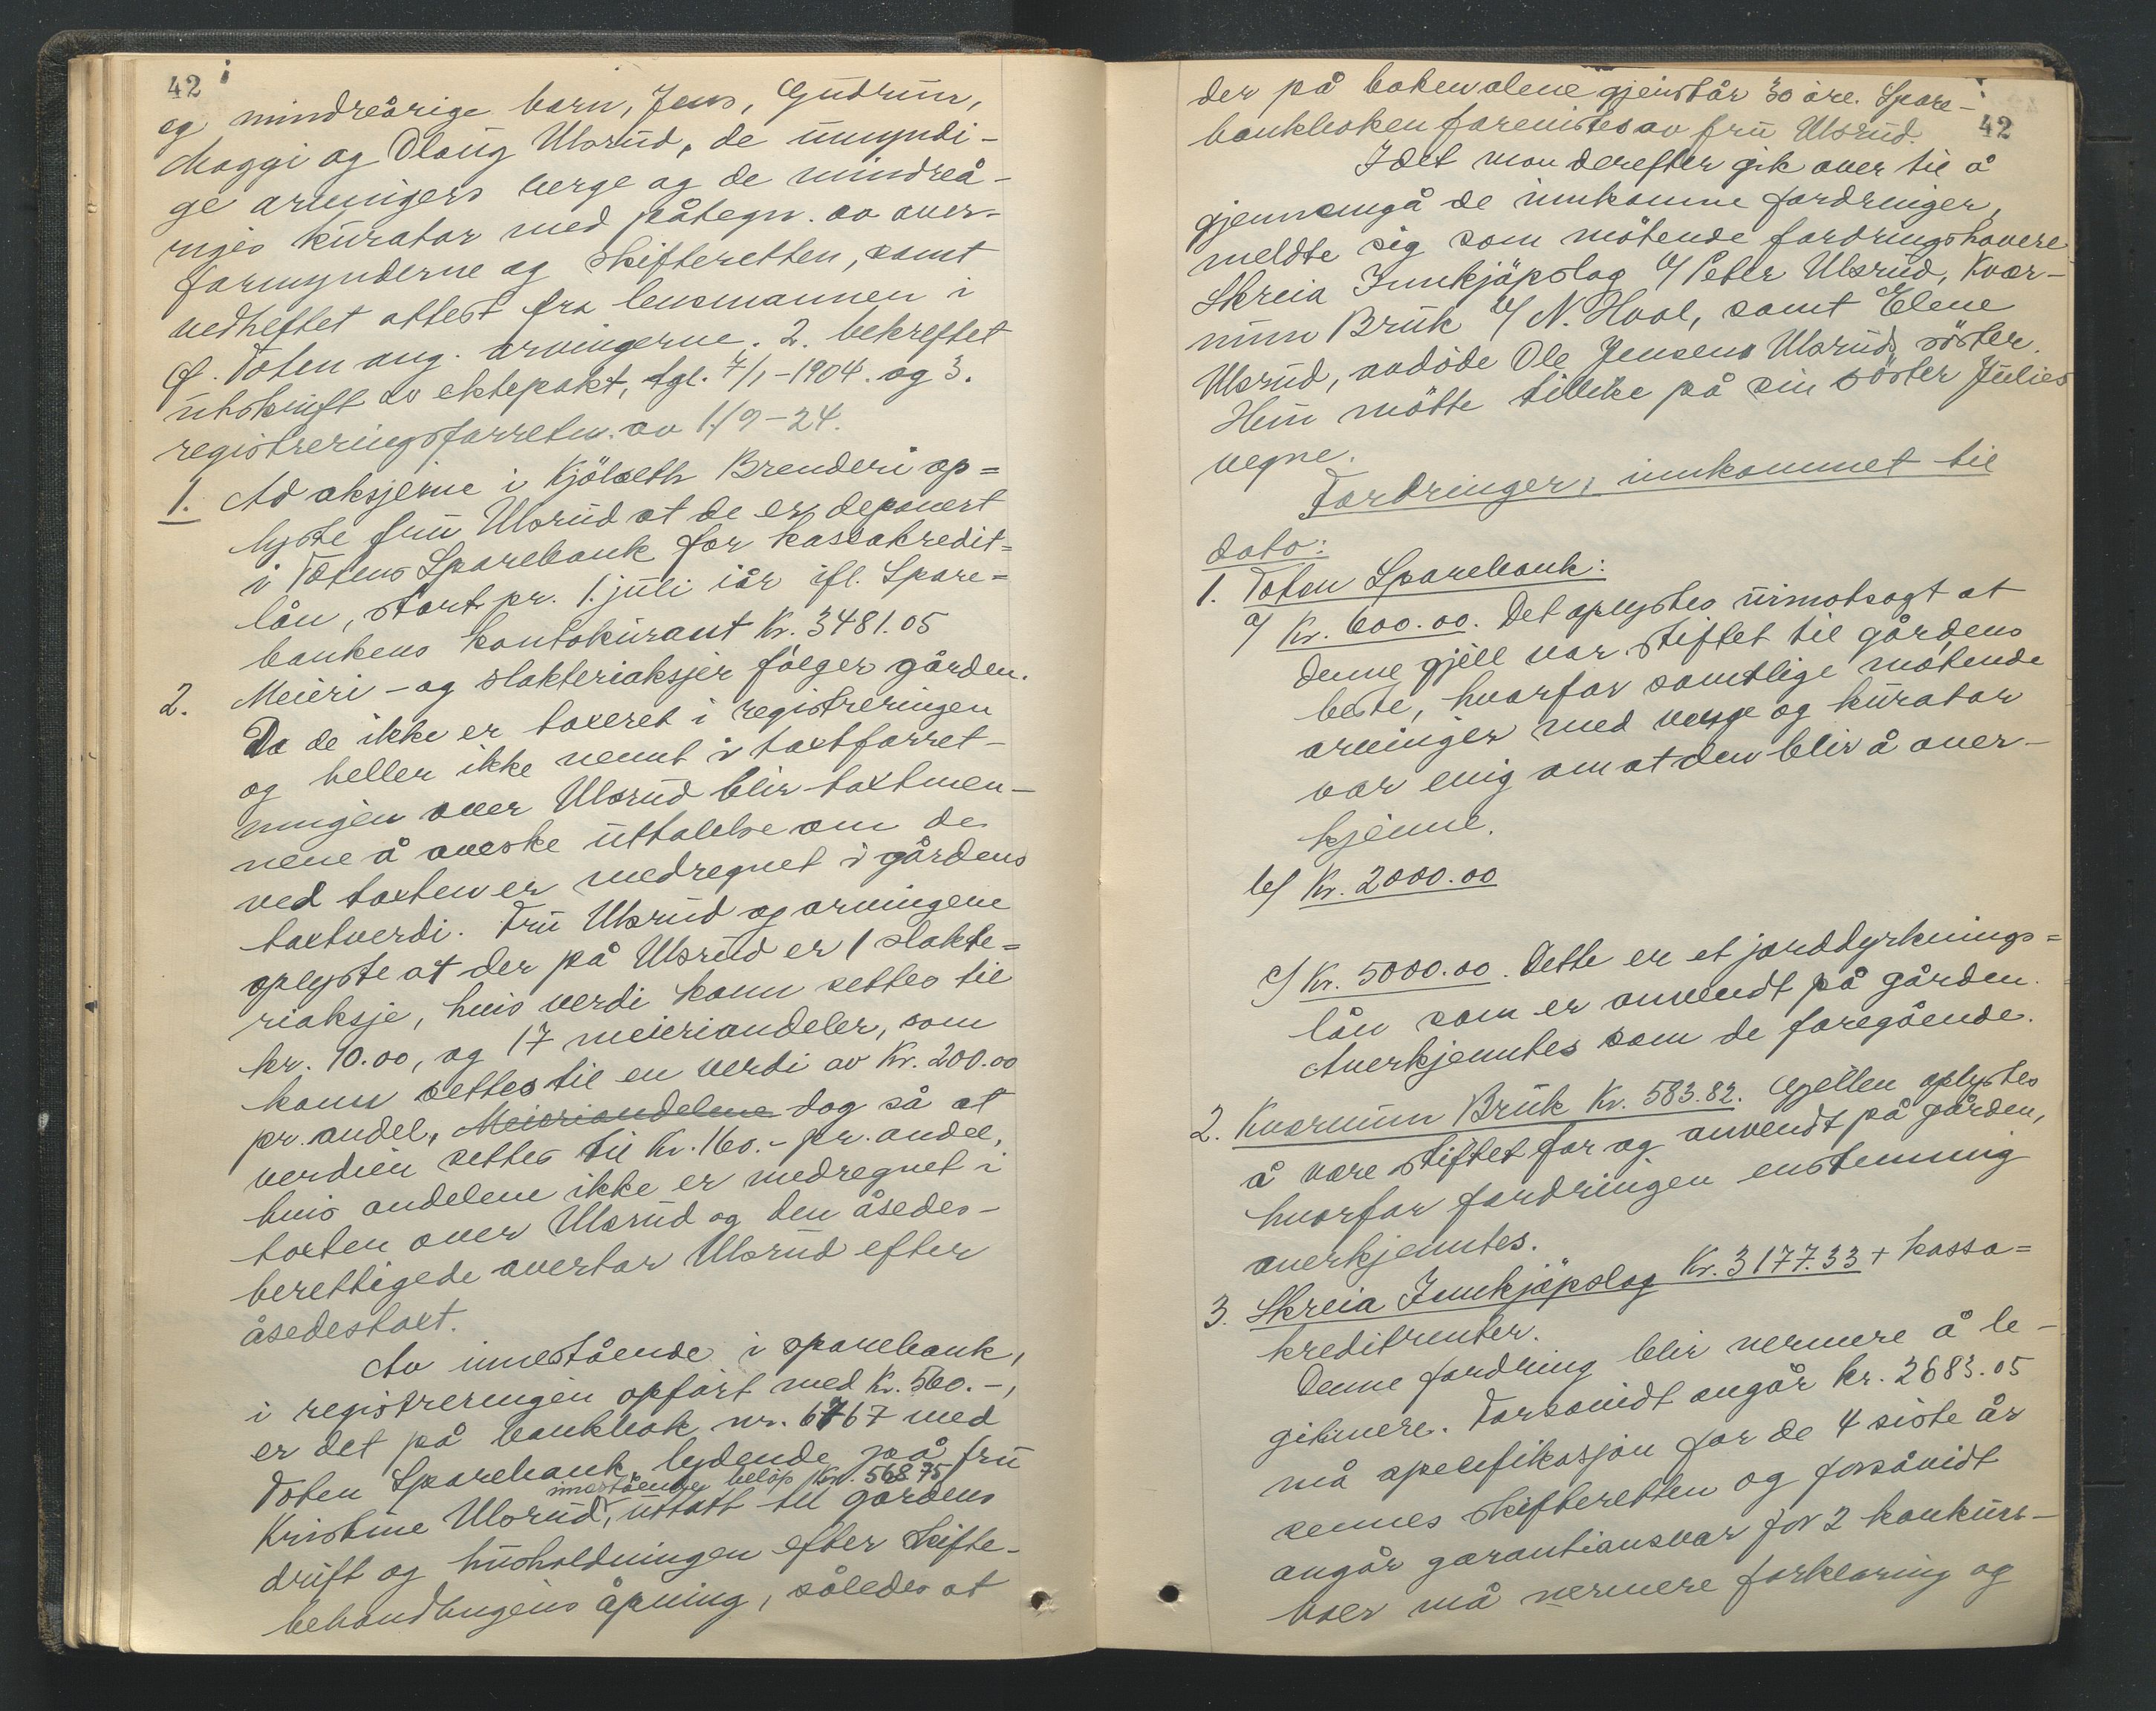 42
og mindreårige barn, Jens, Gudrun,
Maggi og Olaug Ulsrud, de umyndi-
ge arvingers verge og de mindreå-
riges kurator med påtegn. av over-
formynderne og skifteretten, samt
vedheftet attest fra lensmannen i
Ø. Toten ang. arvingerne. 2. bekreftet
utskrift av ektepakt, tgl. 7/1-1904. og 3.
registreringsforretn. av 1/9-24.
1. Ad aksjerne i Kjölseth Brenderi op=
lyste fru Ulsrud at de er deponert
i Totens Sparebank for kassakredit=
lån, stort pr. 1. juli iår ifl. Spare=
bankens kontokurant Kr. 3481.05
2. Meieri- og slakteriaksjer fölger gården.
Da de ikke er taxeret i registreringen
og heller ikke nevnt i taxtforret-
ningen over Ulsrud blir taxtmen-
nene å aveske uttalelse om de
ved taxten er medregnet i gårdens
taxtverdi. Fru Ulsrud og arvingene
oplyste at der på Ulsrud er 1 slakte=
riaksje, hvis verdi kann settes til
kr. 10.00, og 17 meieriandeler, som
kann settes til en verdi av Kr. 200.00
pr. andel, Meieriandelene dog så at
verdien settes til Kr. 160.- pr. andel,
hvis andelene ikke er medregnet i
taxten over Ulsrud og den åsedes-
berettigede overtar Ulsrud efter
åsedestaxt.
Av innestående i sparebank,
i registreringen opfört med Kr. 560.-,
er det på bankbok nr. 6767 med
Toten Sparebank, lydende på fru
innestående belöp Kr. 568 75
Kristine Ulsrud, uttatt til gårdens
drift og husholdningen efter skifte-
behandlingens åpning, således at
der på boken alene gjenstår 30 öre. Spare-
42
bankboken forevistes av fru Ulsrud.
Idet man derefter gik over til å
gjennemgå de innkomne fordringer,
meldte sig som mötende fordringshavere
Skreia Innkjöpslag v/ Peter Ulsrud, Kvær-
num Bruk v/ N. Hval, samt Elene
Ulsrud, avdöde Ole Jensens Ulsruds söster.
Hun mötte tillike på sin söster Julies
vegne.
Fordringer, innkommet til
dato:
1. Toten Sparebank:
a/ Kr. 600.00. Det oplystes uimotsagt at
denne gjell var stiftet til gårdens
beste, hvorfor samtlige mötende
arvinger med verge og kurator
var enig om at den blir å aner-
kjenne.
b/ Kr. 2000.00
c/ Kr. 5000.00. Dette er et jorddyrknings=
lån som er anvendt på gården.
Anerkjenntes som de foregående.
2. Kvernum Bruk Kr. 583.82. Gjellen oplystes
å være stiftet for og anvendt på gården,
hvorfor fordringen enstemmig
anerkjenntes.
3. Skreia Innkjöpslag Kr. 3177.33 + kassa=
kreditrenter.
Denne fordring blir nermere å le-
gitimere. Forsåvidt angår kr. 2683.05
må specifikasjon for de 4 siste år
sennes skifteretten og forsåvidt
angår garantiansvar for 2 konkurs-
boer må nermere forklaring og